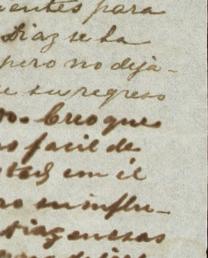 entes para
Diaz se la
pero no dejá-
e su regreso
to. Creo que
o facil de
ted em él
ro su influ-
Diaz en esas